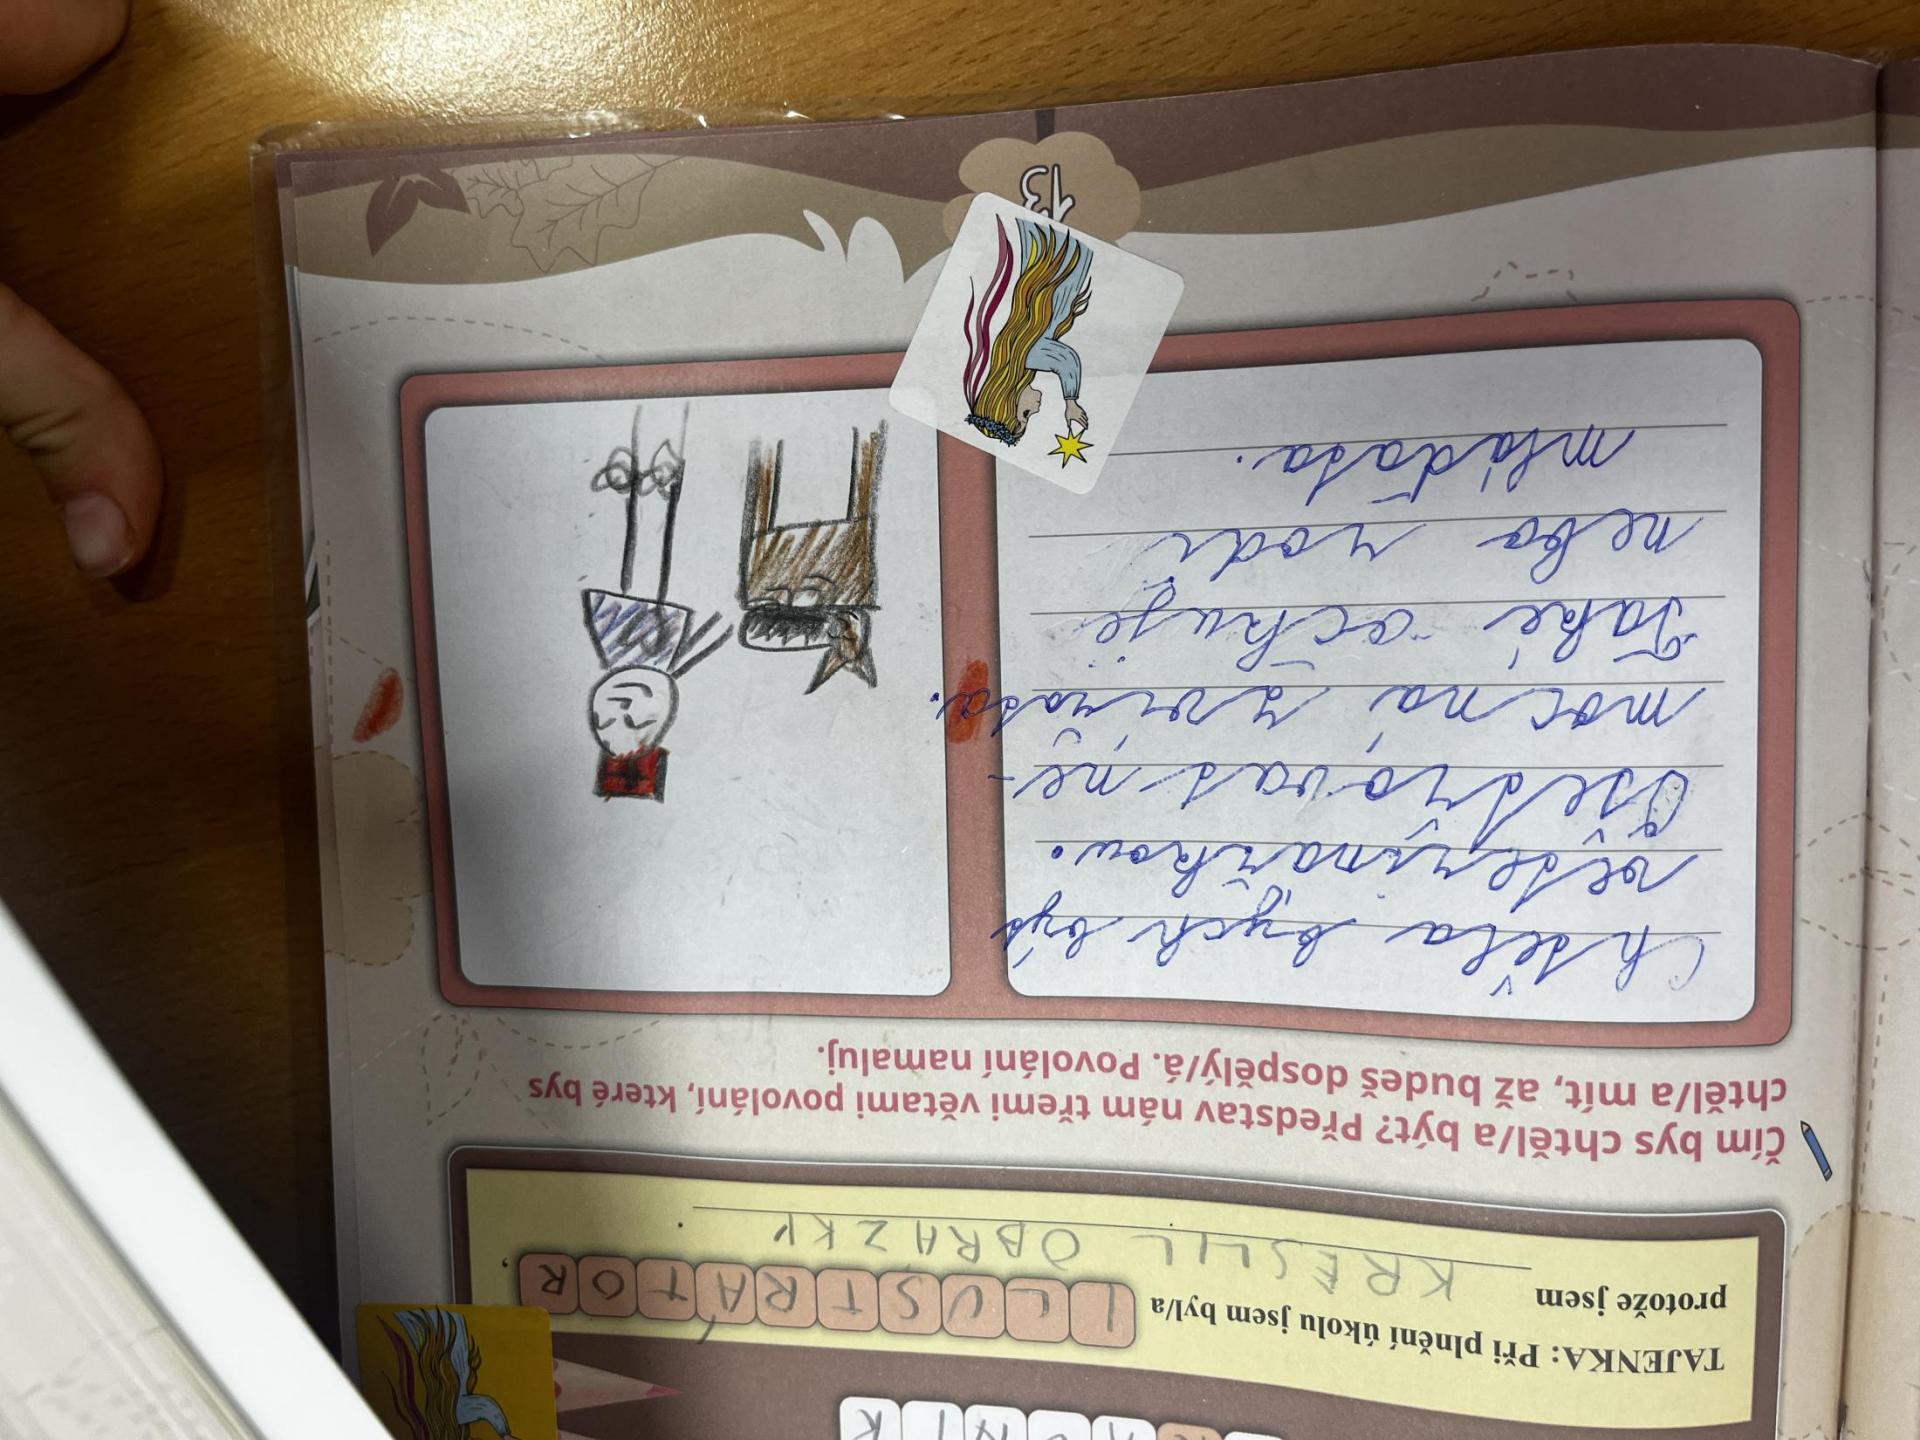 TAJENKA: Při plnění úkolu jsem byl/a ILUSTRÁTOR.
protože jsem KRESLIL OBRAZKY.
Čím bys chtěl/a být? Představ nám třemi větami povolání, které bys
chtěl/a mít, až budeš dospělý/á. Povolání namaluj.
Chtěla bych být
veterinařkou.
Ošetřovat ne-
mocná zvířata.
Také očkuje
nebo rodí
mláďata.
13